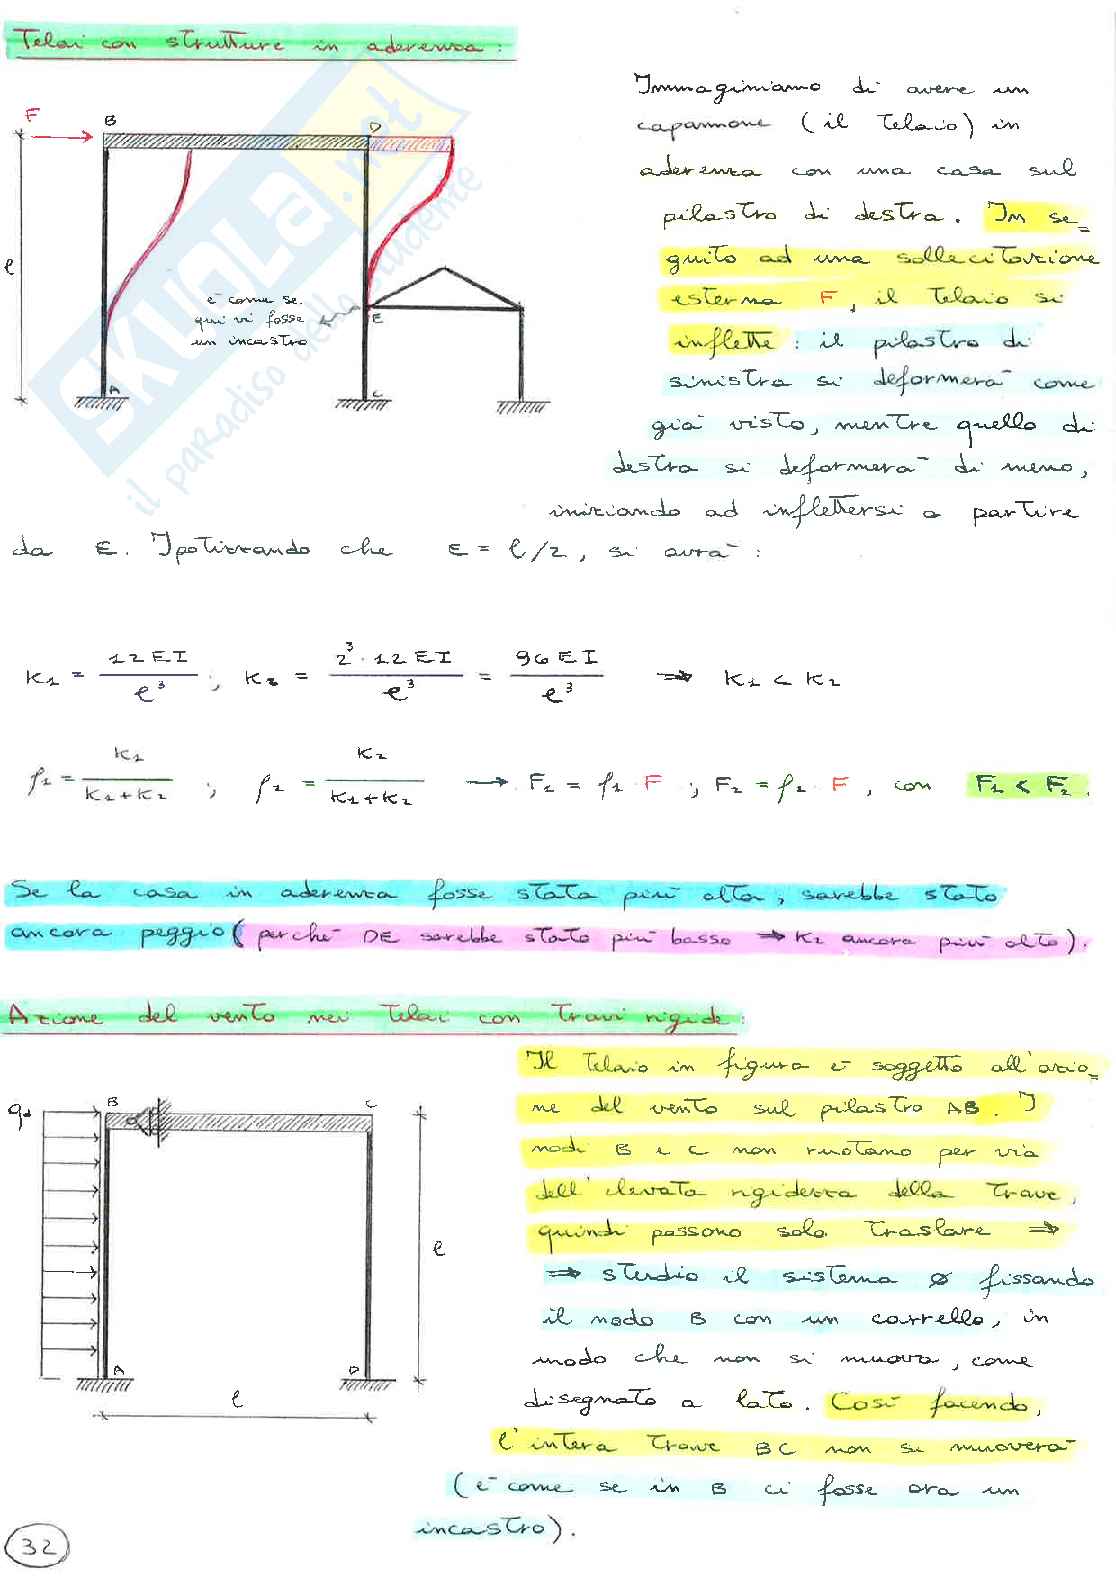 Telai con strutture in aderenza:
Immaginiamo di avere un
capannone (il telaio) in
aderenza con una casa sul
pilastro di destra. In se=
guito ad una sollecitazione
esterna F, il telaio si
inflette: il pilastro di
sinistra si deformerà come
già visto, mentre quello di
destra si deformerà di meno,
iniziando ad inflettersi a partire
da E. Ipotizzando che E = l/2, si avrà:
F
B
D
l
è come se
qui vi fosse
un incastro
E
A
C
SKUOLA.net
il paradiso dello studente
K1 = 12EI / l³ ; K2 = 2³·12EI / l³ = 96EI / l³ ⇒ K1 < K2
ρ1 = K1 / K1+K2 ; ρ2 = K2 / K1+K2 → F1 = ρ1·F ; F2 = ρ2·F, con F1 < F2.
Se la casa in aderenza fosse stata più alta, sarebbe stato
ancora peggio (perché DE sarebbe stato più basso ⇒ K2 ancora più alto).
Azione del vento nei telai con travi rigide:
Il telaio in figura è soggetto all'azio=
ne del vento sul pilastro AB. I
nodi B e C non ruotano per via
dell'elevata rigidezza della trave,
quindi possono solo traslare ⇒
⇒ studio il sistema ∅ fissando
il nodo B con un carrello, in
modo che non si muova, come
disegnato a lato. Così facendo,
l'intera trave BC non si muoverà
(è come se in B ci fosse ora un
incastro).
B
C
l
A
D
l
32